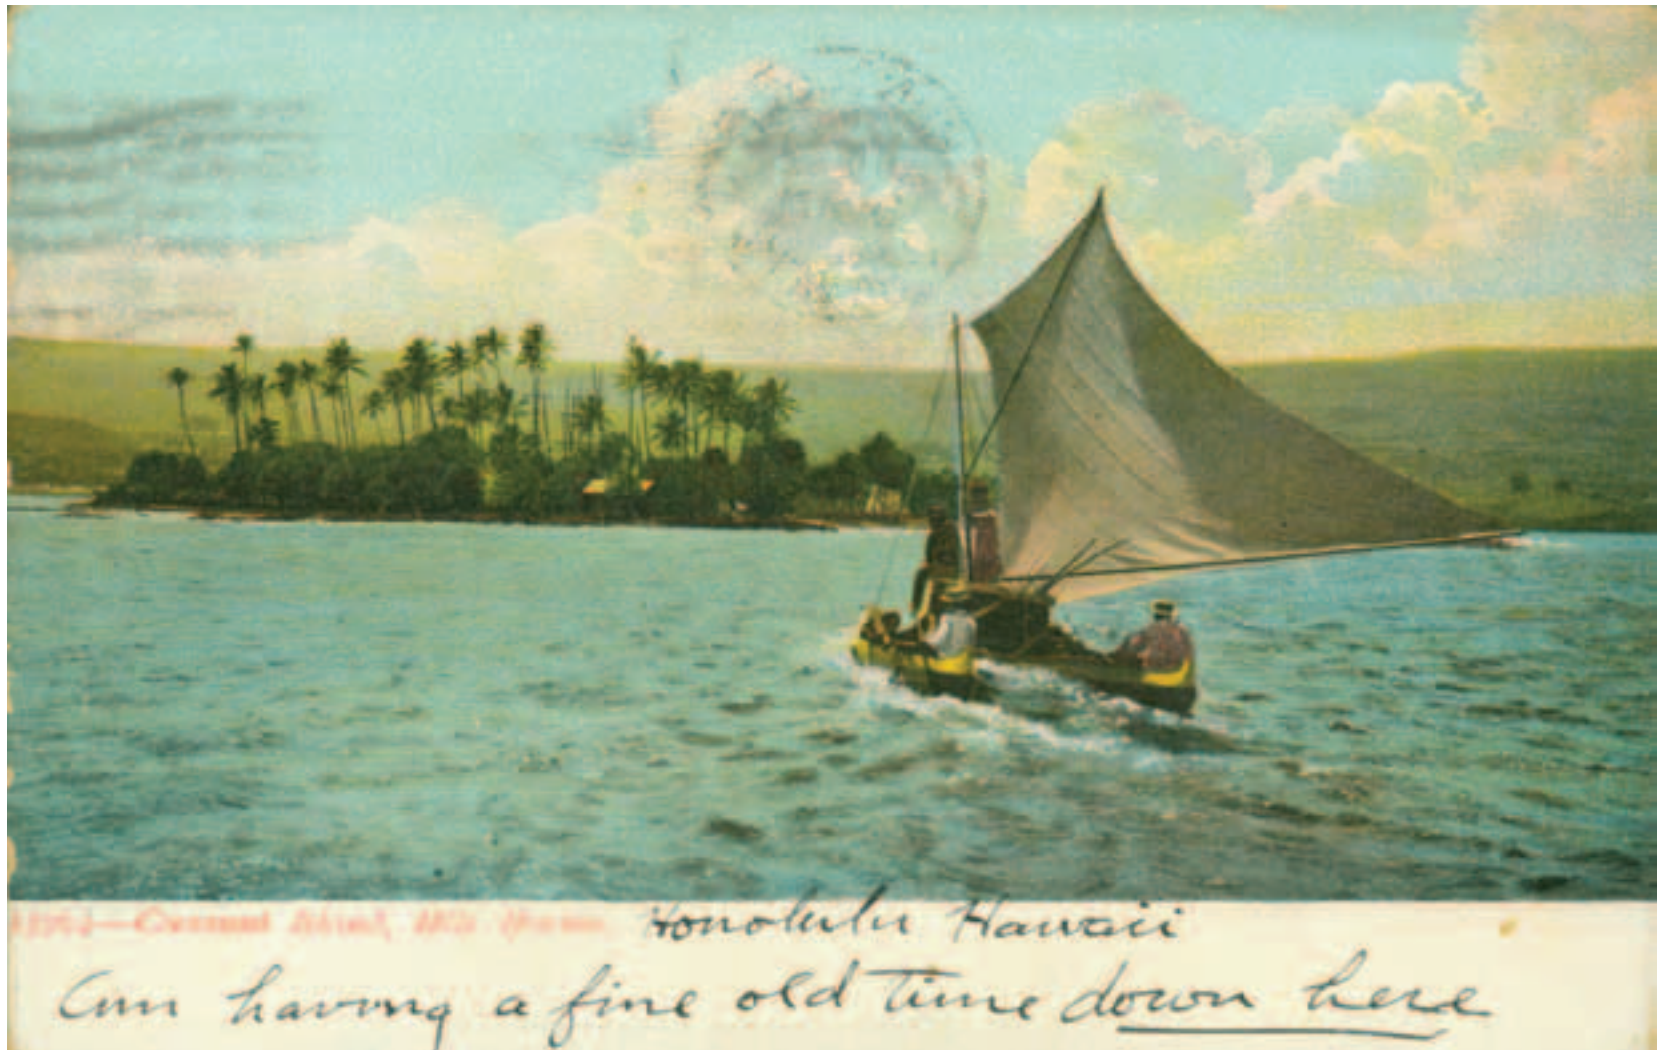 —Cocoanut Island, Hilo Hawaii. Honolulu Hawaii
Am having a fine old time down here